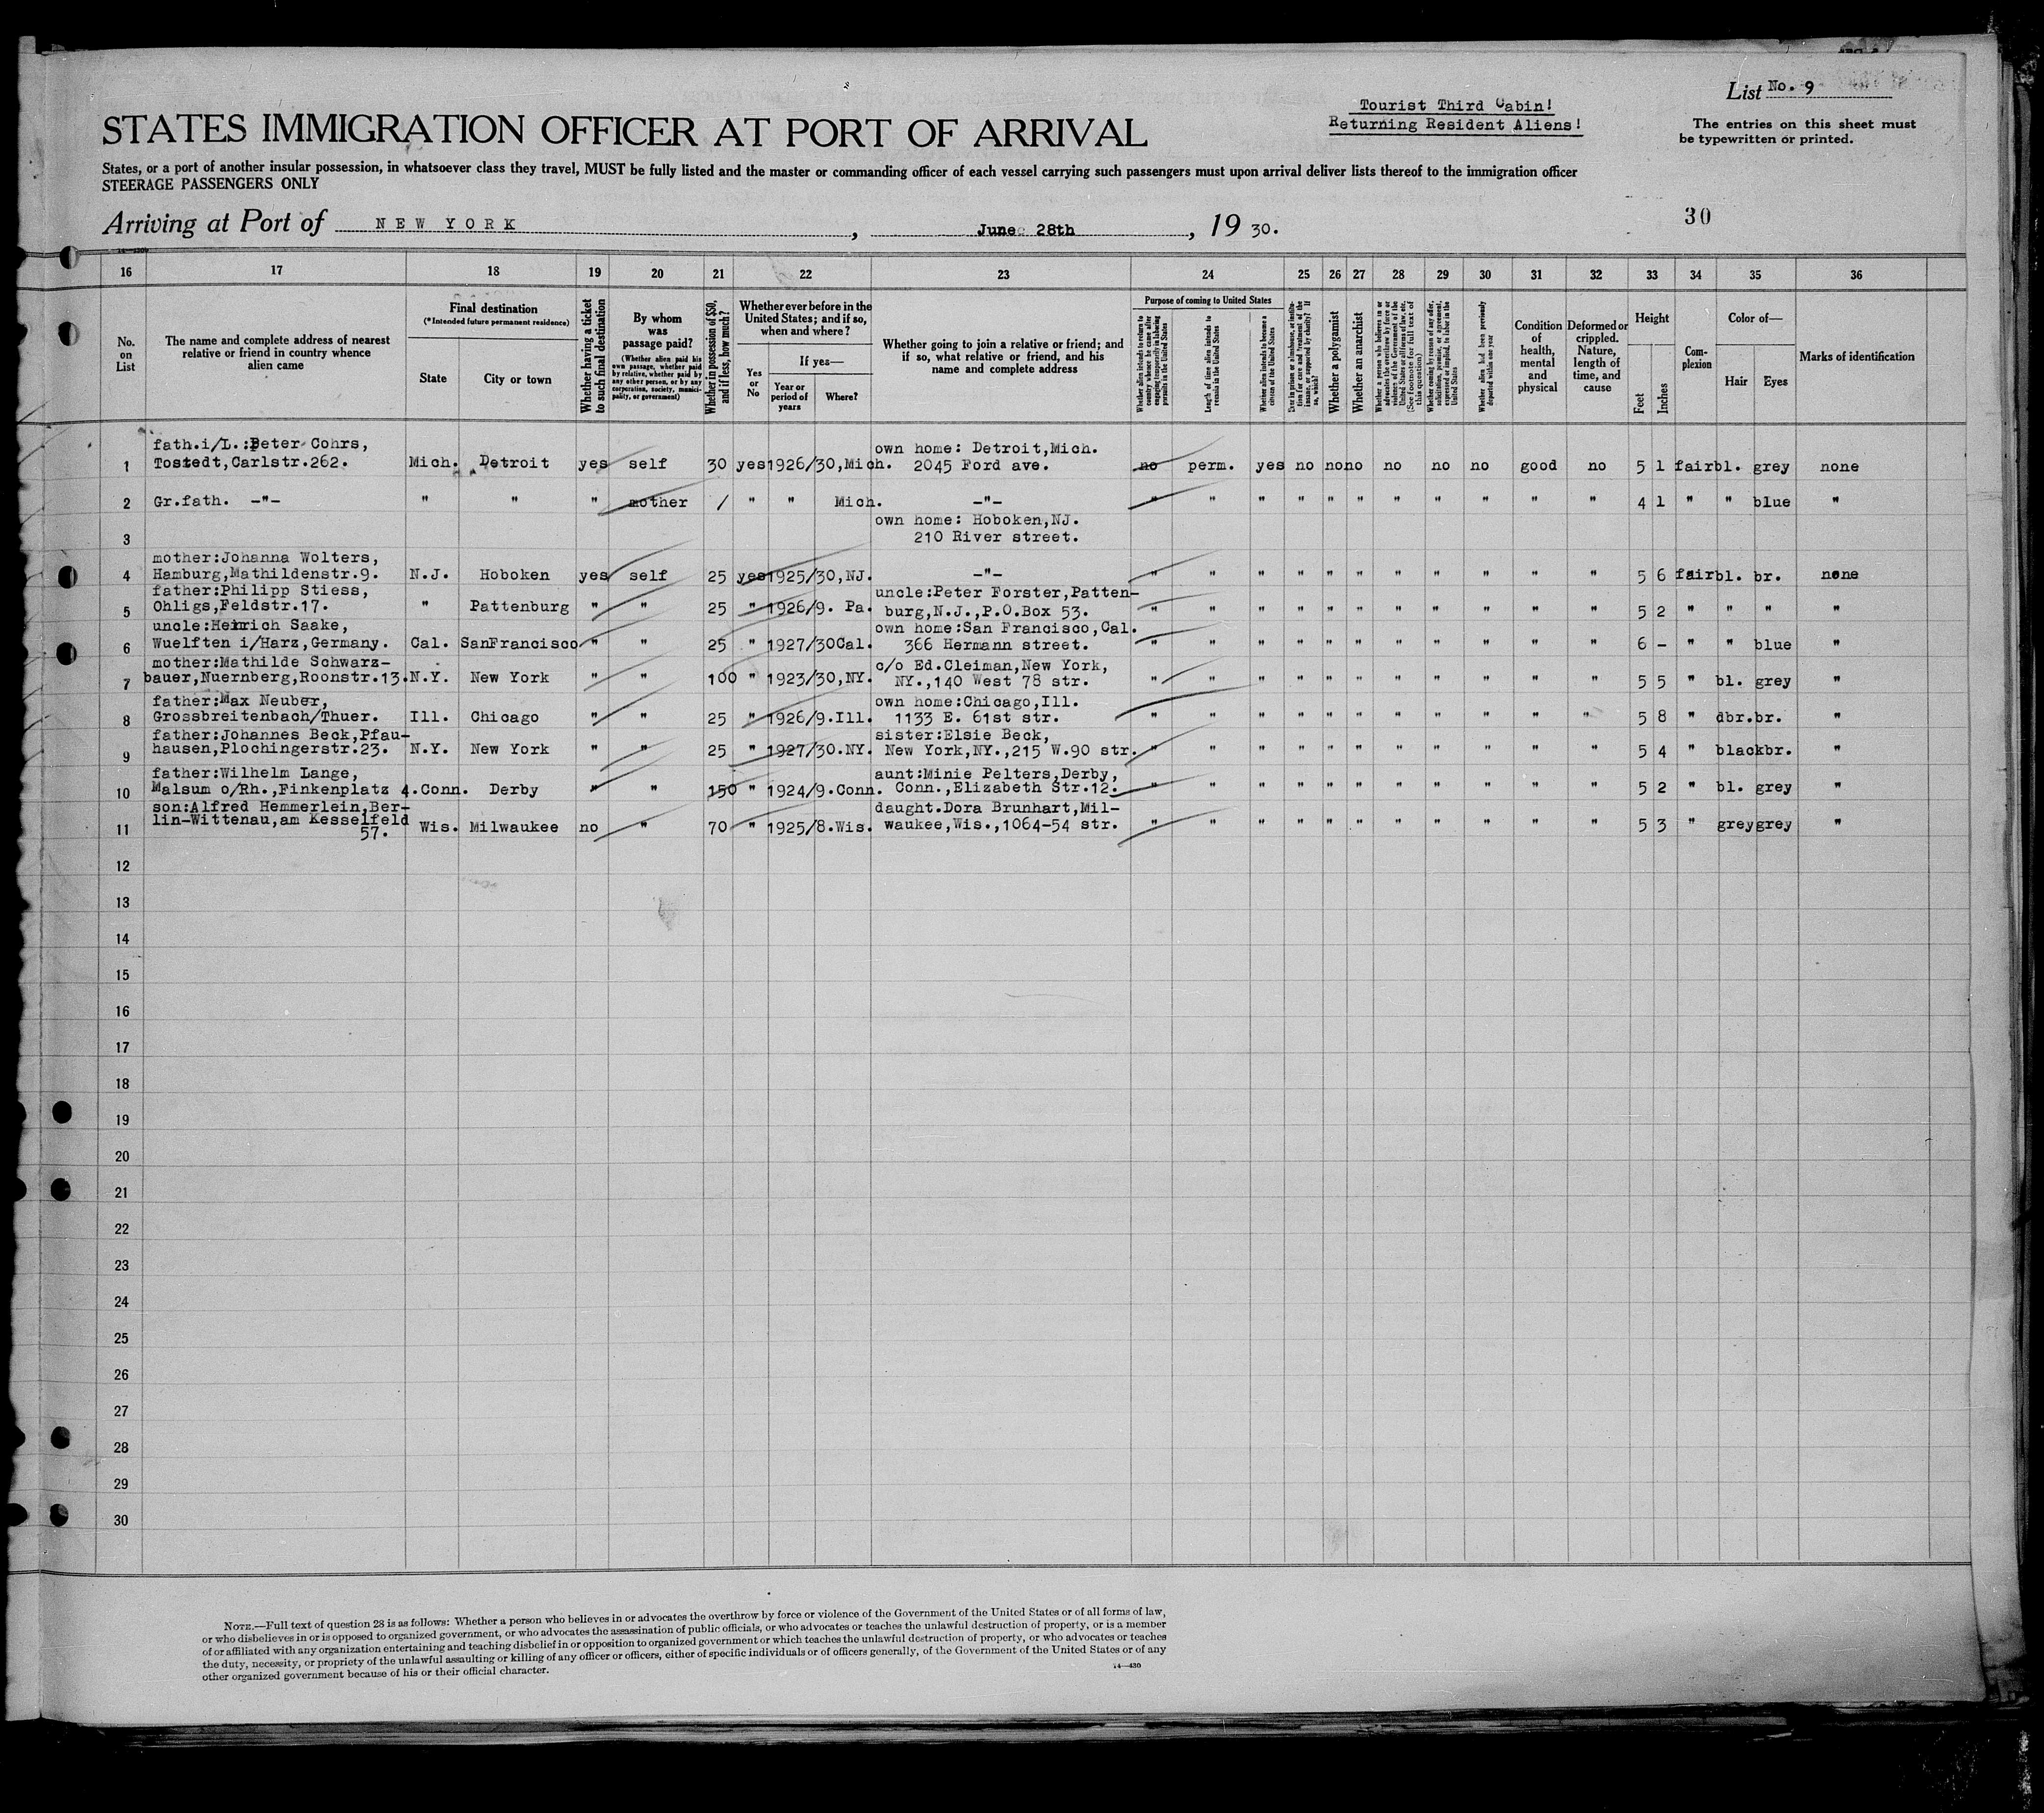 List No. 9
Tourist Third Cabin!
Returning Resident Aliens!
The entries on this sheet must
be typewritten or printed.
STATES IMMIGRATION OFFICER AT PORT OF ARRIVAL
States, or a port of another insular possession, in whatsoever class they travel, MUST be fully listed and the master or commanding officer of each vessel carrying such passengers must upon arrival deliver lists thereof to the immigration officer
STEERAGE PASSENGERS ONLY
Arriving at Port of NEW YORK, June 28th, 19 30.
30
16 17 18 19 20 21 22 23 24 25 26 27 28 29 30 31 32 33 34 35 36
No. on List
The name and complete address of nearest
relative or friend in country whence
alien came
Final destination
(*Intended future permanent residence)
State
City or town
Whether having a ticket
to such final destination
By whom
was
passage paid?
(Whether alien paid his
own passage, whether paid
by relative, whether paid by
any other person, or by any
corporation, society, munici-
pality, or government)
Whether in possession of $50,
and if less, how much?
Whether ever before in the
United States; and if so,
when and where?
Yes
or
No
If yes—
Year or
period of
years
Where?
Whether going to join a relative or friend; and
if so, what relative or friend, and his
name and complete address
Purpose of coming to United States
Whether alien intends to return to
country whence he came after
engaging temporarily in laboring
pursuits in the United States
Length of time alien intends to
remain in the United States
Whether alien intends to become a
citizen of the United States
Ever in prison or almshouse, or institu-
tion for care and treatment of the
insane, or supported by charity? If
so, which?
Whether a polygamist
Whether an anarchist
Whether a person who believes in or
advocates the overthrow by force or
violence of the Government of the
United States or all forms of law, etc.
(See footnote for full text of
this question)
Whether coming by reason of any offer,
solicitation, promise, or agreement,
expressed or implied, to labor in the
United States
Whether alien had been previously
deported within one year
Condition
of
health,
mental
and
physical
Deformed or
crippled.
Nature,
length of
time, and
cause
Height
Feet
Inches
Com-
plexion
Color of—
Hair
Eyes
Marks of identification
fath.i/L.:Peter Cohrs, own home: Detroit,Mich.
1 Tostedt,Carlstr.262. Mich. Detroit yes self 30 yes 1926/30,Mich. 2045 Ford ave. no perm. yes no no no no no no good no 5 1 fair bl. grey none
2 Gr.fath. -"- " " " mother / " " Mich. -"- " " " " " " " " " " " 4 1 " " blue "
own home: Hoboken,NJ.
3 210 River street.
mother:Johanna Wolters,
4 Hamburg,Mathildenstr.9. N.J. Hoboken yes self 25 yes 1925/30,NJ. -"- " " " " " " " " " " " 5 6 fair bl. br. none
father:Philipp Stiess, uncle:Peter Forster,Patten-
5 Ohligs,Feldstr.17. " Pattenburg " " 25 " 1926/9. Pa. burg,N.J.,P.O.Box 53. " " " " " " " " " " " 5 2 " " " "
uncle:Heinrich Saake, own home:San Francisco,Cal.
6 Wuelften i/Harz,Germany. Cal. SanFrancisco " " 25 " 1927/30Cal. 366 Hermann street. " " " " " " " " " " " 6 - " " blue "
mother:Mathilde Schwarz- c/o Ed.Cleiman,New York,
7 bauer,Nuernberg,Roonstr.13. N.Y. New York " " 100 " 1923/30,NY. NY.,140 West 78 str. " " " " " " " " " " " 5 5 " bl. grey "
father:Max Neuber, own home:Chicago,Ill.
8 Grossbreitenbach/Thuer. Ill. Chicago " " 25 " 1926/9.Ill. 1133 E. 61st str. " " " " " " " " " " " 5 8 " dbr. br. "
father:Johannes Beck,Pfau- sister:Elsie Beck,
9 hausen,Plochingerstr.23. N.Y. New York " " 25 " 1927/30.NY. New York,NY.,215 W.90 str. " " " " " " " " " " " 5 4 " black br. "
father:Wilhelm Lange, aunt:Minie Pelters,Derby,
10 Malsum o/Rh.,Finkenplatz 4. Conn. Derby " " 150 " 1924/9.Conn. Conn.,Elizabeth Str.12. " " " " " " " " " " " 5 2 " bl. grey "
son:Alfred Hemmerlein,Ber- daught.Dora Brunhart,Mil-
11 lin-Wittenau,am Kesselfeld 57. Wis. Milwaukee no " 70 " 1925/8.Wis. waukee,Wis.,1064-54 str. " " " " " " " " " " " 5 3 " grey grey "
12
13
14
15
16
17
18
19
20
21
22
23
24
25
26
27
28
29
30
NOTE.—Full text of question 28 is as follows: Whether a person who believes in or advocates the overthrow by force or violence of the Government of the United States or of all forms of law,
or who disbelieves in or is opposed to organized government, or who advocates the assassination of public officials, or who advocates or teaches the unlawful destruction of property, or is a member
of or affiliated with any organization entertaining and teaching disbelief in or opposition to organized government or which teaches the unlawful destruction of property, or who advocates or teaches
the duty, necessity, or propriety of the unlawful assaulting or killing of any officer or officers, either of specific individuals or of officers generally, of the Government of the United States or of any
other organized government because of his or their official character.
14—430